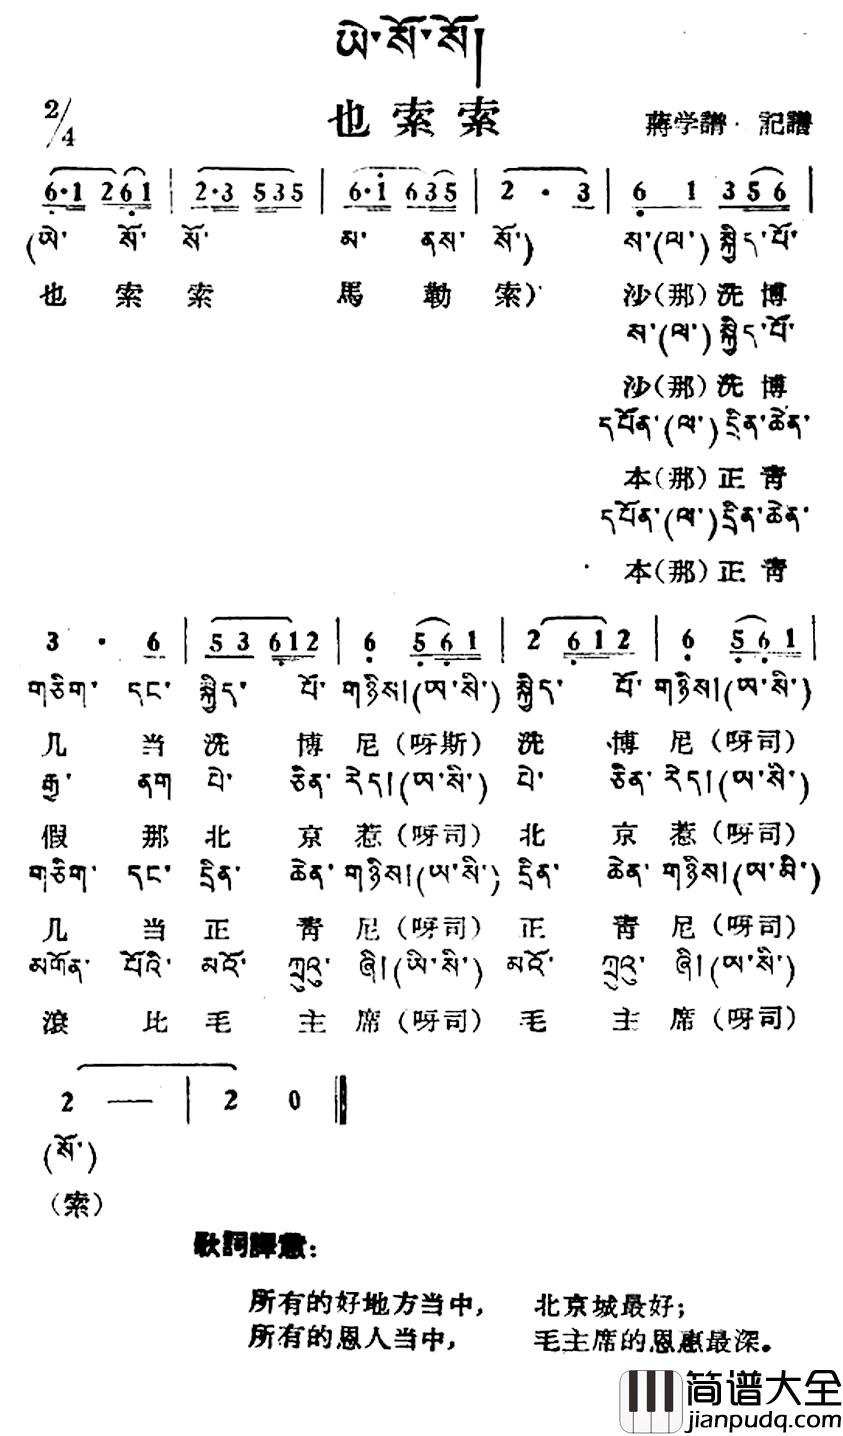 ཡེ་སོ་སོ།
2/4 也索索 蔣学譜·記譜
6·1 2 6 1 | 2·3 5 3 5 | 6·i 6 3 5 | 2 · 3 | 6 1 3 5 6 |
(ཨེ་ སོ་ སོ་ མ་ ནས་ སོ་) ས་(ལ་)སྐྱིད་པོ་
也索索 馬勒索) 沙(那)洗博
ས་(ལ་)སྐྱིད་པོ་
沙(那)洗博
དཔོན་(ལ་)དྲིན་ཆེན་
本(那)正青
དཔོན་(ལ་)དྲིན་ཆེན་
本(那)正青
3 · 6 | 5 3 6 1 2 | 6 5 6 1 | 2 6 1 2 | 6 5 6 1 |
གཅིག་ དང་ སྐྱིད་ པོ་ གཉིས།(ཨ་སི་) སྐྱིད་ པོ་ གཉིས།(ཨ་སི་)
几当洗博尼(呀斯)洗博尼(呀司)
རྒྱ་ ནག པེ་ ཅིན་ རེད།(ཨ་སི་) པེ་ ཅིན་ རེད།(ཨ་སི་)
假那北京惹(呀司)北京惹(呀司)
གཅིག་ དང་ དྲིན་ ཆེན་ གཉིས།(ཨ་སི་) དྲིན་ ཆེན་ གཉིས།(ཨ་སི་)
几当正青尼(呀司)正青尼(呀司)
མགོན་ པོའི་ མའོ་ ཀྲུའུ་ ཞི།(ཡི་སི་) མའོ་ ཀྲུའུ་ ཞི།(ཨ་སི་)
滾比毛主席(呀司)毛主席(呀司)
2 — | 2 0 ‖
(སོ་)
(索)
歌詞譯意:
所有的好地方当中, 北京城最好;
所有的恩人当中, 毛主席的恩惠最深。
简谱大全
jianpudq.com